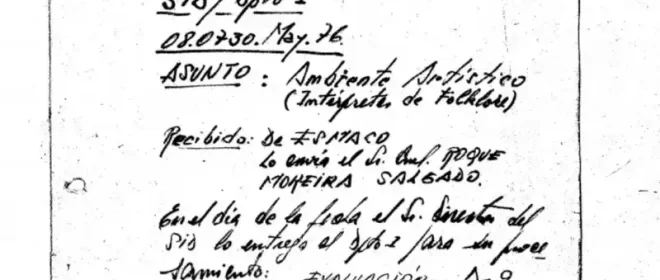 SID / Dpto I
08.0730.May.76.
ASUNTO : Ambiente Artístico
(Intérpretes de Folklore)
Recibido: De ESMACO
Lo envía el Sr. Cnel. ROQUE
MOREIRA SALGADO.
En el día de la fecha el Sr. Director del
SID lo entregó al Dpto I para su proce
samiento:
EVALUACIÓN